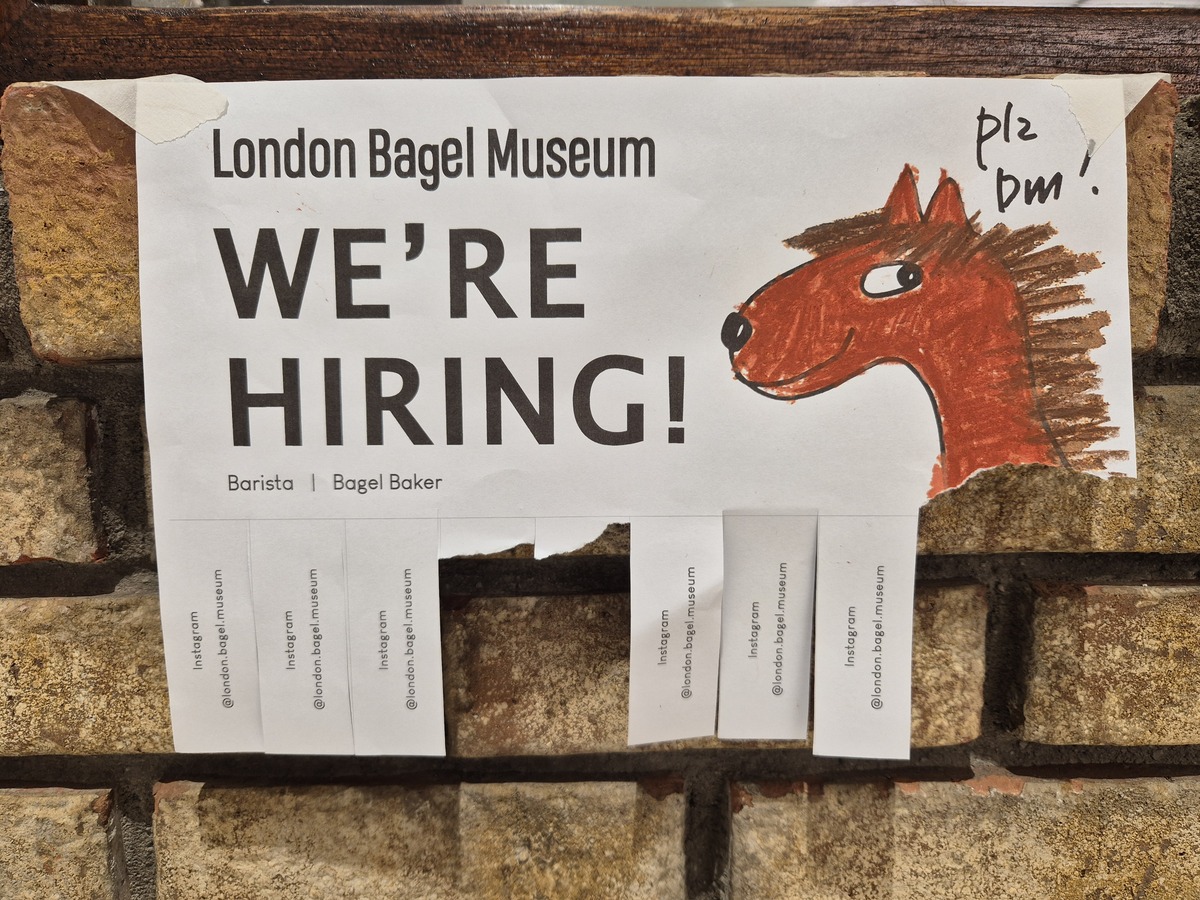 London Bagel Museum
WE'RE
HIRING!
Barista | Bagel Baker
plz
Dm!
Instagram
@london.bagel.museum
Instagram
@london.bagel.museum
Instagram
@london.bagel.museum
Instagram
@london.bagel.museum
Instagram
@london.bagel.museum
Instagram
@london.bagel.museum